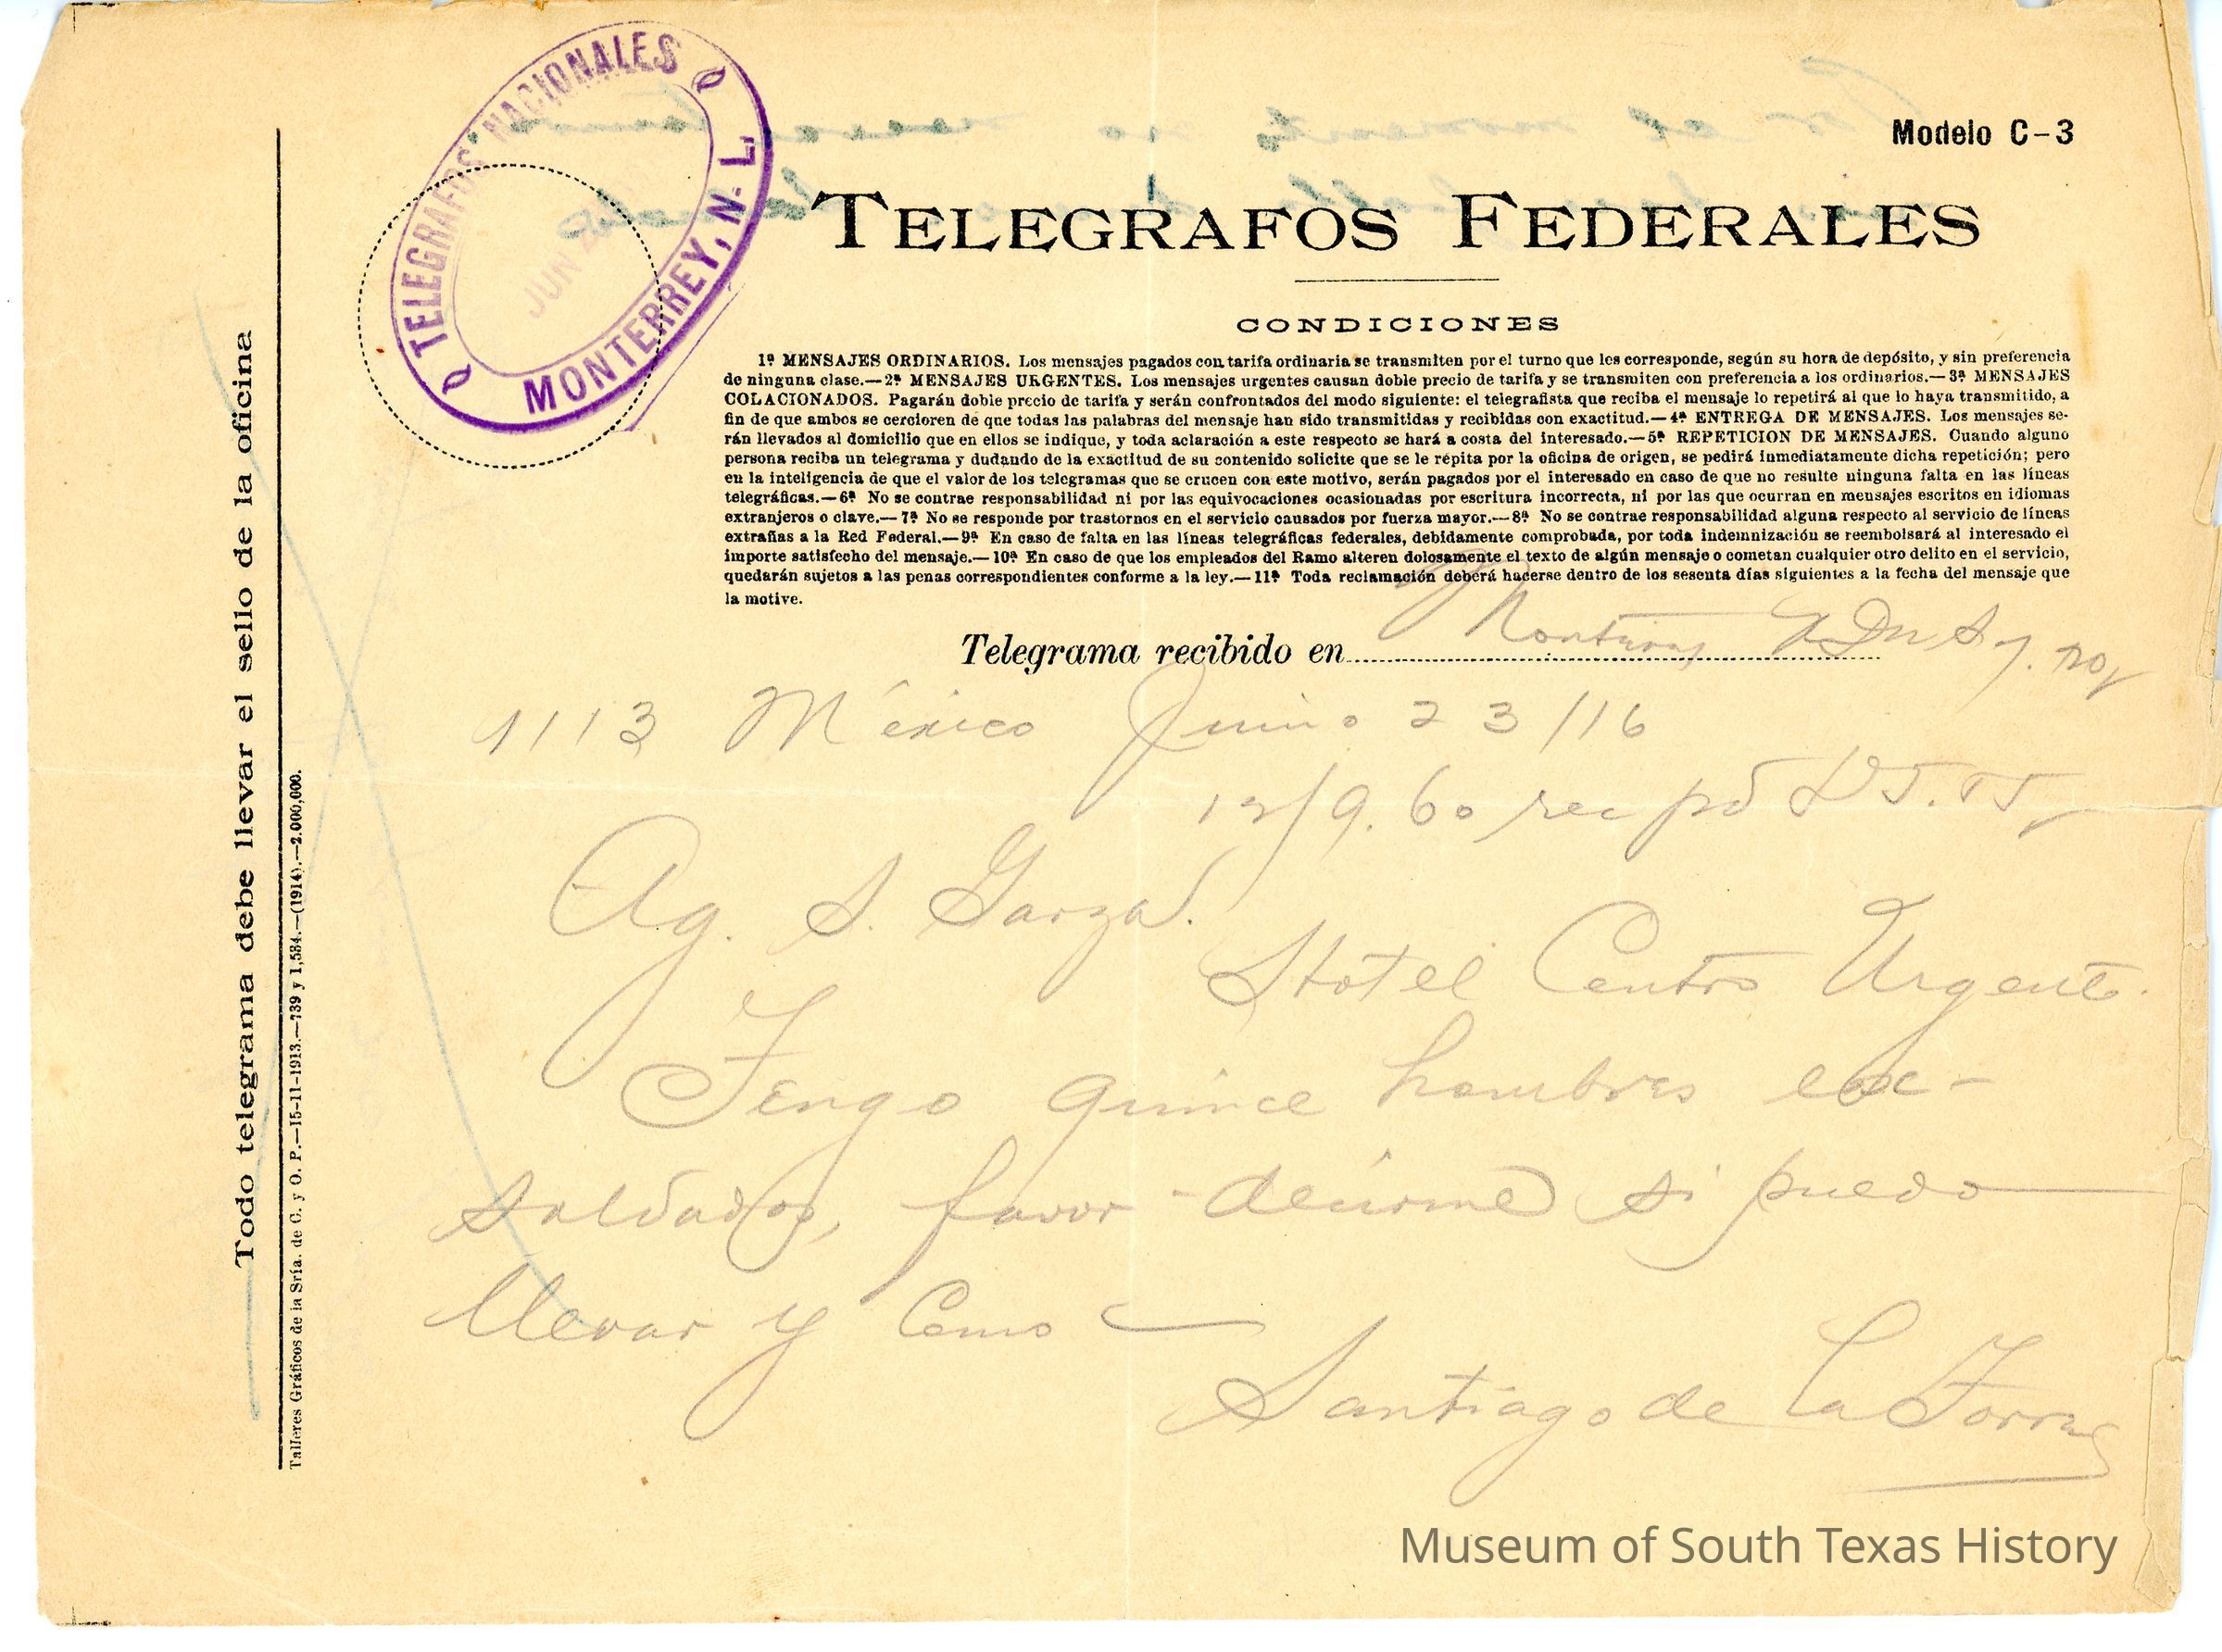 TELEGRAFOS NACIONALES
JUN 23
MONTERREY, N. L.
Modelo C-3
TELEGRAFOS FEDERALES
CONDICIONES
1ª MENSAJES ORDINARIOS. Los mensajes pagados con tarifa ordinaria se transmiten por el turno que les corresponde, según su hora de depósito, y sin preferencia
de ninguna clase.—2ª MENSAJES URGENTES. Los mensajes urgentes causan doble precio de tarifa y se transmiten con preferencia a los ordinarios.—3ª MENSAJES
COLACIONADOS. Pagarán doble precio de tarifa y serán confrontados del modo siguiente: el telegrafista que reciba el mensaje lo repetirá al que lo haya transmitido, a
fin de que ambos se cercioren de que todas las palabras del mensaje han sido transmitidas y recibidas con exactitud.—4ª ENTREGA DE MENSAJES. Los mensajes se-
rán llevados al domicilio que en ellos se indique, y toda aclaración a este respecto se hará a costa del interesado.—5ª REPETICION DE MENSAJES. Cuando alguno
persona reciba un telegrama y dudando de la exactitud de su contenido solicite que se le repita por la oficina de origen, se pedirá inmediatamente dicha repetición; pero
en la inteligencia de que el valor de los telegramas que se crucen con este motivo, serán pagados por el interesado en caso de que no resulte ninguna falta en las líneas
telegráficas.—6ª No se contrae responsabilidad ni por las equivocaciones ocasionadas por escritura incorrecta, ni por las que ocurran en mensajes escritos en idiomas
extranjeros o clave.—7ª No se responde por trastornos en el servicio causados por fuerza mayor.—8ª No se contrae responsabilidad alguna respecto al servicio de líneas
extrañas a la Red Federal.—9ª En caso de falta en las líneas telegráficas federales, debidamente comprobada, por toda indemnización se reembolsará al interesado el
importe satisfecho del mensaje.—10ª En caso de que los empleados del Ramo alteren dolosamente el texto de algún mensaje o cometan cualquier otro delito en el servicio,
quedarán sujetos a las penas correspondientes conforme a la ley.—11ª Toda reclamación deberá hacerse dentro de los sesenta días siguientes a la fecha del mensaje que
la motive.
Telegrama recibido en Monterrey
1113 México Junio 23/16
12/9.60 rec pd
Ag. S. Garza.
Hotel Centro Urgente.
Tengo quince hombres ex-
soldados, favor decirme si puedo
llevar y Como
Santiago de la Torre
Todo telegrama debe llevar el sello de la oficina
Talleres Gráficos de la Sría. de C. y O. P.—15-11-1913.—739 y 1,584.—(1914).—2.000,000.
Museum of South Texas History